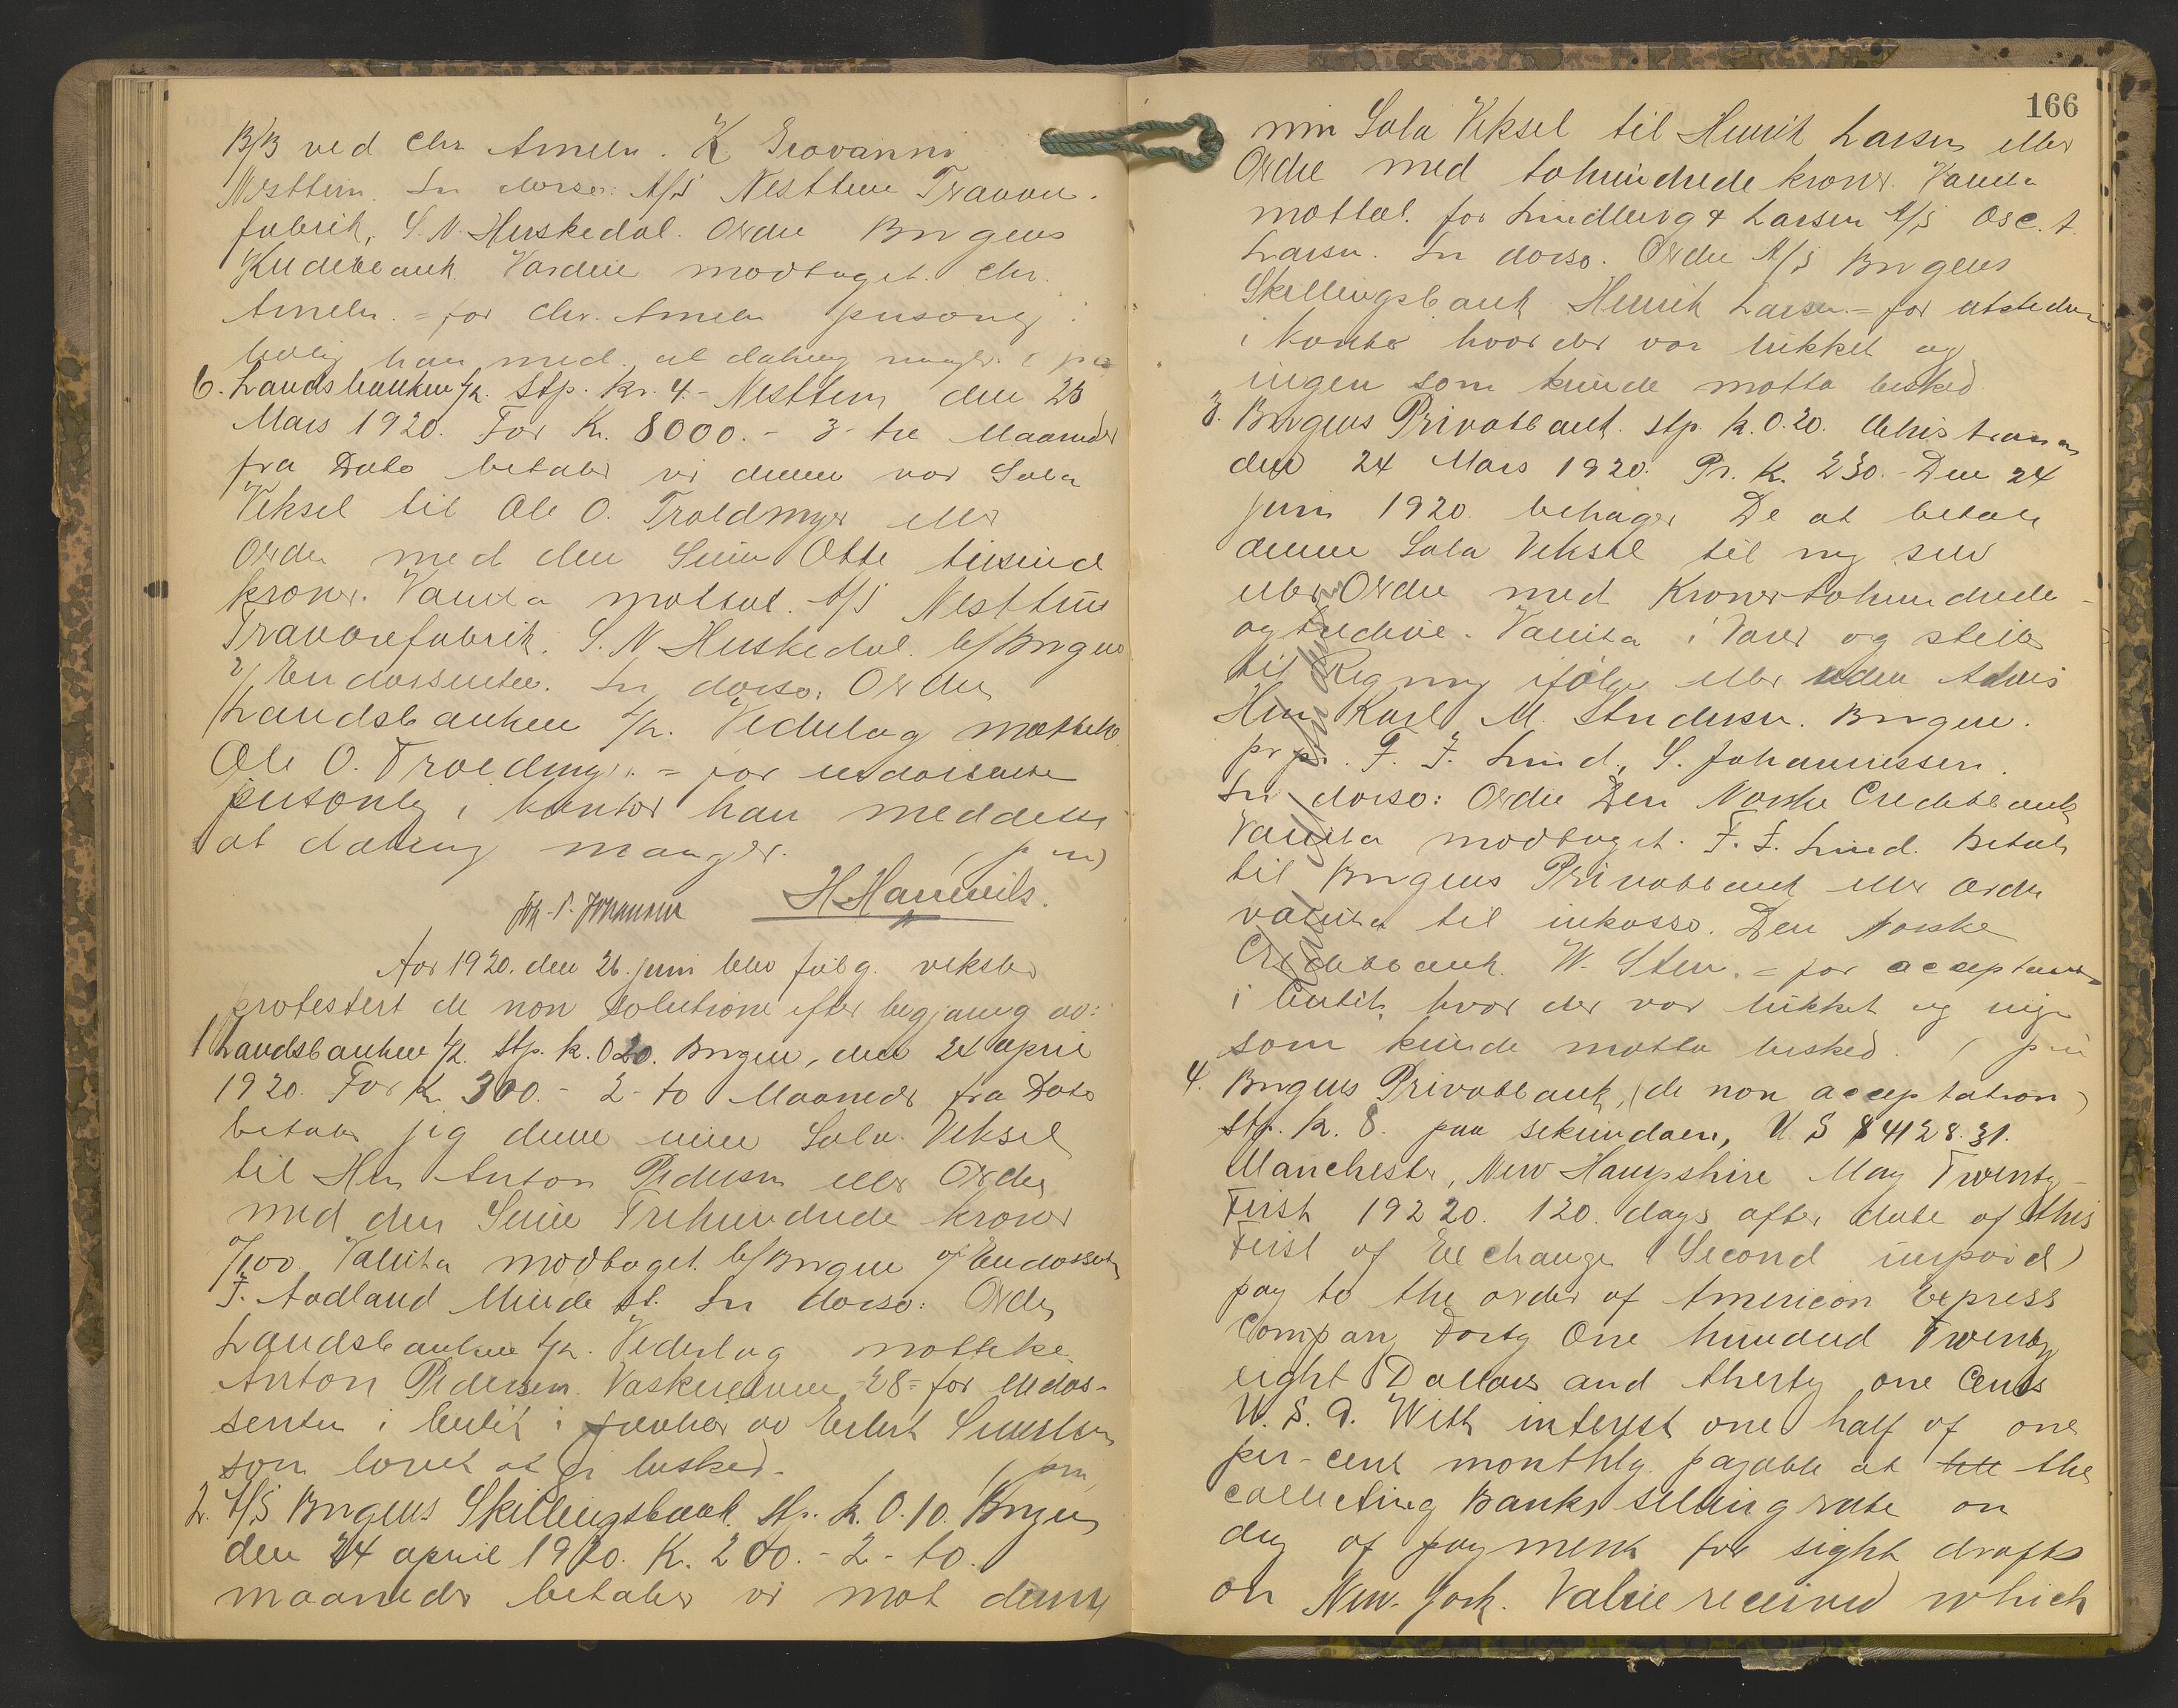 B/B ved Chr. Ameln. K Giovanni
Nesttun. In dorso: A/S Nesttun Trævare-
fabrik, S. N. Huskedal. Ordre Bergens
Kreditbank. Værdien modtaget. Chr.
Ameln. = for Chr. Ameln personlig i
bolig han med. at daking mangler (
6. Landsbanken A/L. Stp. kr. 4.- Nesttun den 25
Mars 1920. For Kr. 8000.- 3- tre Maaneder
fra Dato betaler vi denne vor Sola
Veksel til Ole O. Troldmyr eller
Ordre med den Sum Otte tusind
kroner. Valuta mottat. A/S Nesttun
Trævarefabrik. S. N Huskedal. b/Bergen
v/ Endossenten. In dorso: Ordre
Landsbanken A/L. Vederlag mottatt
Ole O. Troldmyr. = for endossenten
personlig i kontor han meddelte
at dækning mangler.
Joh. P. Johannsen H Hammils.
Aar 1920. den 26. juni blev følg. veksler
protestert de non solutione efter begjæring av:
1 Landsbanken A/L. Stp. k. 0.20. Bergen, den 24 april
1920. For K. 300.- 2- to Maaneder fra Dato
betaler jeg denne min Sola Veksel
til Hr. Anton Pedersen eller Ordre
med den Sum Trehundrede kroner
0/100. Valuta modtaget. b/Bergen v/ Endossenten
F. Aadland Minde st. In dorso: Ordre
Landsbanken A/L. Vederlag mottatt
Anton Pedersen. Vaskerelven 28 = for endos-
senten i butik i fravær av Eilert Simonsen
som lovet at gi besked.
2. A/S Bergens Skillingsbank. Stp. k. 0.10. Bergen
den 24 april 1920. K. 200.- 2- to.
maaneder betaler vi mot denne
166
min Sola Veksel til Henrik Larsen eller
Ordre med tohundrede kroner. Valuta
mottat. for Lindberg & Larsen A/S Osc. A.
Larsen. In dorso. Ordre A/S Bergens
Skillingsbank Henrik Larsen = for utstederen
i kontor hvor der var lukket og
ingen som kunde motta besked.
3. Bergens Privatbank. Stp. k. 0.20.
den 24 Mars 1920. Pr. K. 230.- Den 24
juni 1920 behager De at betale
denne Sola Veksel til mig selv
eller Ordre med Kroner tohundrede-
og tredive. Valuta i Varer og stilles
til Regning ifølge eller uden Advis
Herr Karl M. Andersen. Bergen.
pr pr. F. F. Lind, S. Johannessen.
In dorso: Ordre Den Norske Creditbank
Valuta modtaget. F. F. Lind. Betal
til Bergens Privatbank eller ordre
valuta til inkasso. Den Norske
Creditbank. W. Sten. = for acceptanten
i butik hvor der var lukket og ingen
som kunde motta besked.
4. Bergens Privatbank, (de non acceptation)
stp. k. 8. paa sekundaen, U. S $ 4128.31.
Manchester, New Hampshire May Twenty-
First 19220. 120 days after date of this
First of Exchange (Second unpaid)
pay to the order of American Express
Company Forty One hundred Twenty
eight Dollars and therty one Cents
U. S. A. With interest one half of one
per-cent monthly payable at the
collecting Banks selling rate on
day of payment for sight drafts
on New-York. Value received which